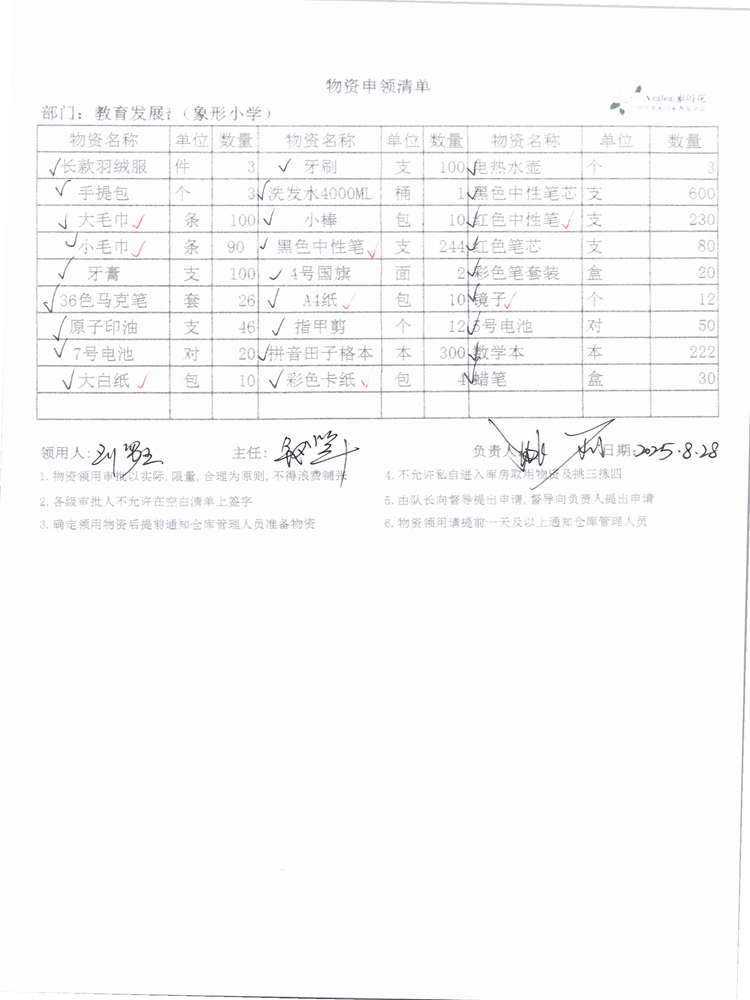 物资申领清单
部门：教育发展 （象形小学）
物资名称 单位 数量 物资名称 单位 数量 物资名称 单位 数量
✓长款羽绒服 件 3 ✓牙刷 支 100 ✓电热水壶 个 3
✓手提包 个 3 ✓洗发水4000ML 桶 1 ✓黑色中性笔芯 支 600
✓大毛巾✓ 条 100 ✓小棒 包 10 ✓红色中性笔✓ 支 230
✓小毛巾✓ 条 90 ✓黑色中性笔✓ 支 244 ✓红色笔芯 支 80
✓牙膏 支 100 ✓4号国旗 面 2 ✓彩色笔套装 盒 20
✓36色马克笔 套 26 ✓A4纸✓ 包 10 ✓镜子✓ 个 12
✓原子印油 支 46 ✓指甲剪 个 12 ✓5号电池 对 50
✓7号电池 对 20 ✓拼音田子格本 本 300 ✓数学本 本 222
✓大白纸✓ 包 10 ✓彩色卡纸✓ 包 4 ✓蜡笔 盒 30
领用人： 主任： 负责人 日期：2025.8.28
1.物资领用审批以实际,限量,合理为原则,不得浪费铺张
2.各级审批人不允许在空白清单上签字
3.确定领用物资后提前通知仓库管理人员准备物资
4.不允许私自进入库房取用物资及挑三拣四
5.由队长向督导提出申请,督导向负责人提出申请
6.物资领用请提前一天及以上通知仓库管理人员